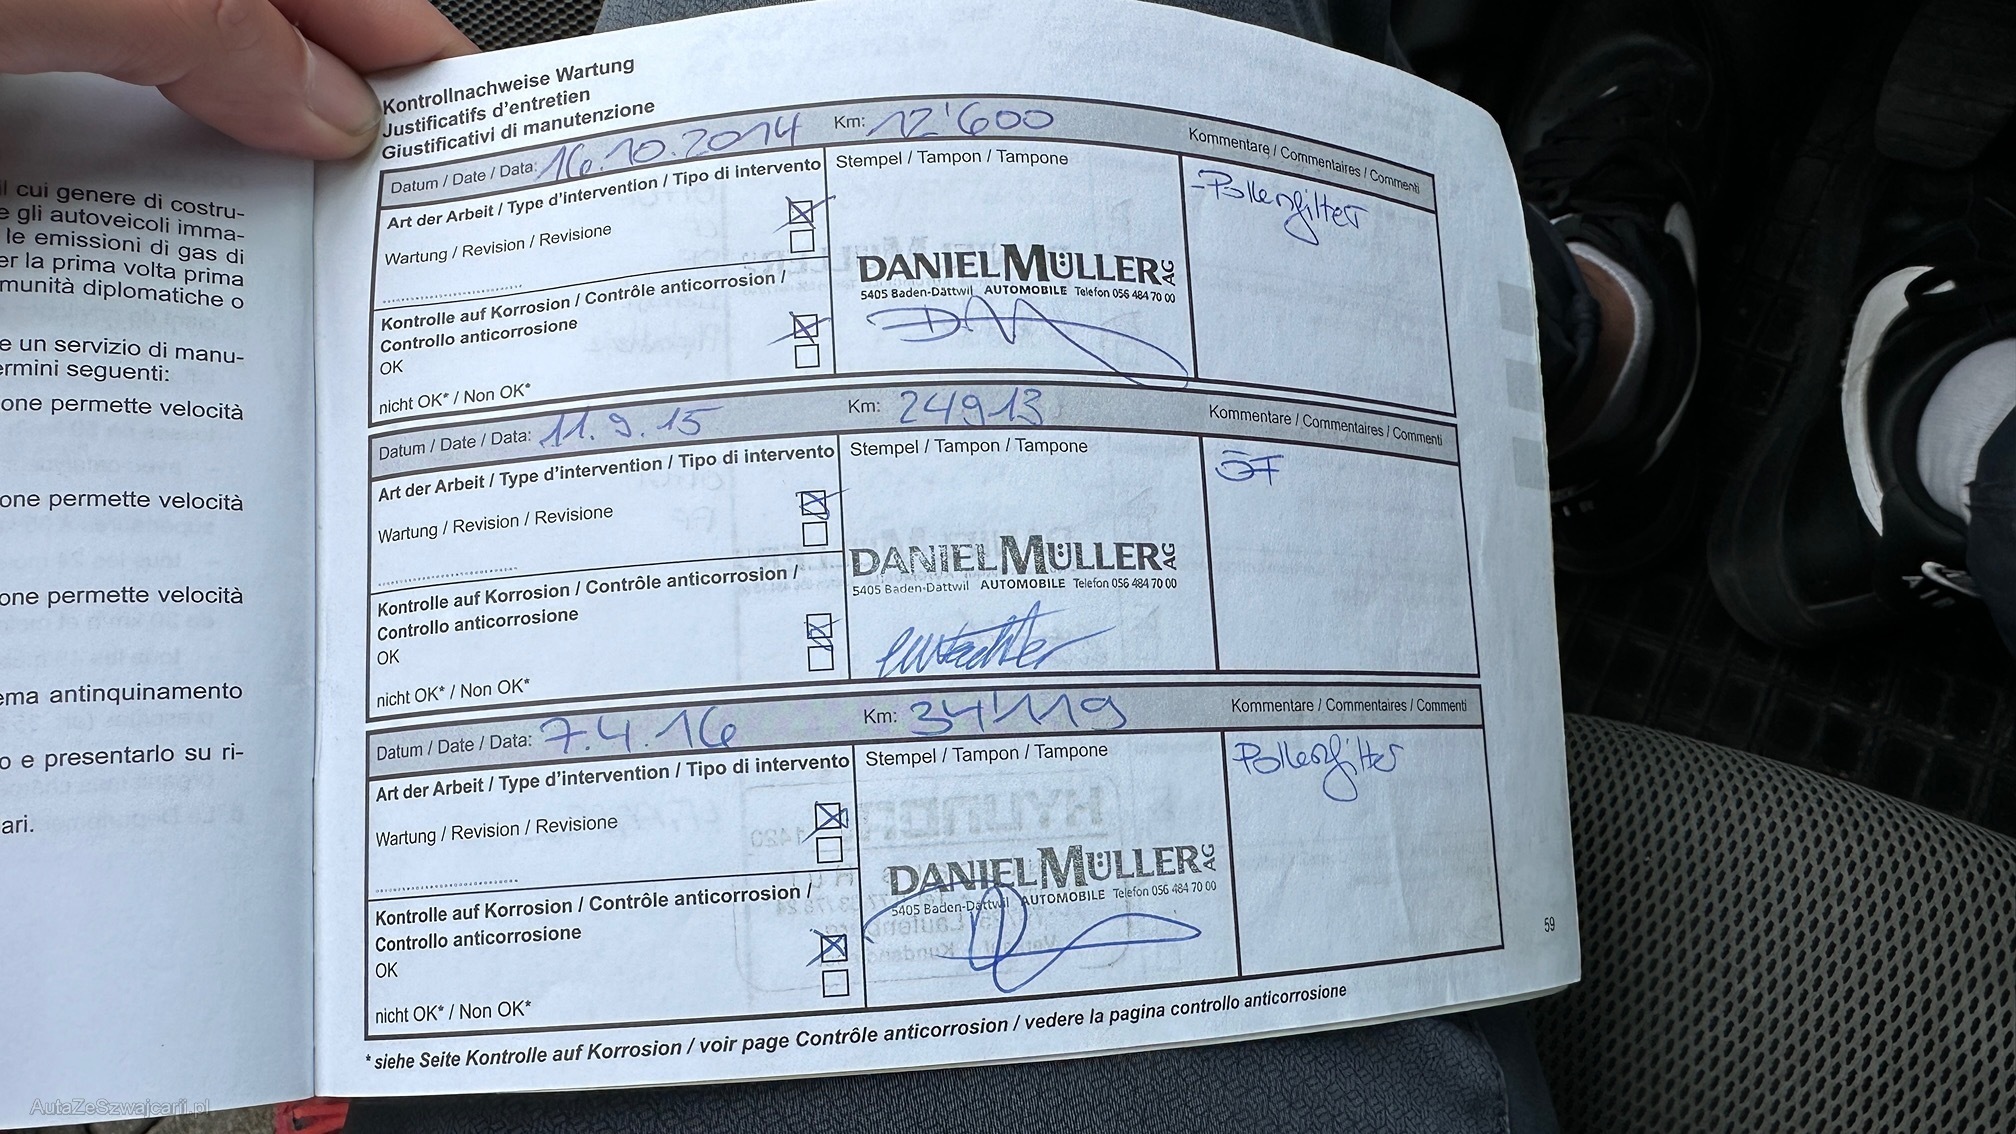 il cui genere di costru-
e gli autoveicoli imma-
le emissioni di gas di
er la prima volta prima
munità diplomatiche o
e un servizio di manu-
ermini seguenti:
one permette velocità
one permette velocità
one permette velocità
ema antinquinamento
o e presentarlo su ri-
ari.
Kontrollnachweise Wartung
Justificatifs d'entretien
Giustificativi di manutenzione
Datum / Date / Data: 16.10.2014 Km: 12'600 Kommentare / Commentaires / Commenti
Art der Arbeit / Type d'intervention / Tipo di intervento
Wartung / Revision / Revisione
Kontrolle auf Korrosion / Contrôle anticorrosion /
Controllo anticorrosione
OK
nicht OK* / Non OK*
Stempel / Tampon / Tampone
DANIEL MÜLLER AG
5405 Baden-Dättwil AUTOMOBILE Telefon 056 484 70 00
-Pollenfilter
Datum / Date / Data: 11.9.15 Km: 24913 Kommentare / Commentaires / Commenti
Art der Arbeit / Type d'intervention / Tipo di intervento
Wartung / Revision / Revisione
Kontrolle auf Korrosion / Contrôle anticorrosion /
Controllo anticorrosione
OK
nicht OK* / Non OK*
Stempel / Tampon / Tampone
DANIEL MÜLLER AG
5405 Baden-Dättwil AUTOMOBILE Telefon 056 484 70 00
Datum / Date / Data: 7.4.16 Km: 34'119 Kommentare / Commentaires / Commenti
Art der Arbeit / Type d'intervention / Tipo di intervento
Wartung / Revision / Revisione
Kontrolle auf Korrosion / Contrôle anticorrosion /
Controllo anticorrosione
OK
nicht OK* / Non OK*
Stempel / Tampon / Tampone
DANIEL MÜLLER AG
5405 Baden-Dättwil AUTOMOBILE Telefon 056 484 70 00
Pollenfilter
* siehe Seite Kontrolle auf Korrosion / voir page Contrôle anticorrosion / vedere la pagina controllo anticorrosione
59
AutaZeSzwajcarii.pl